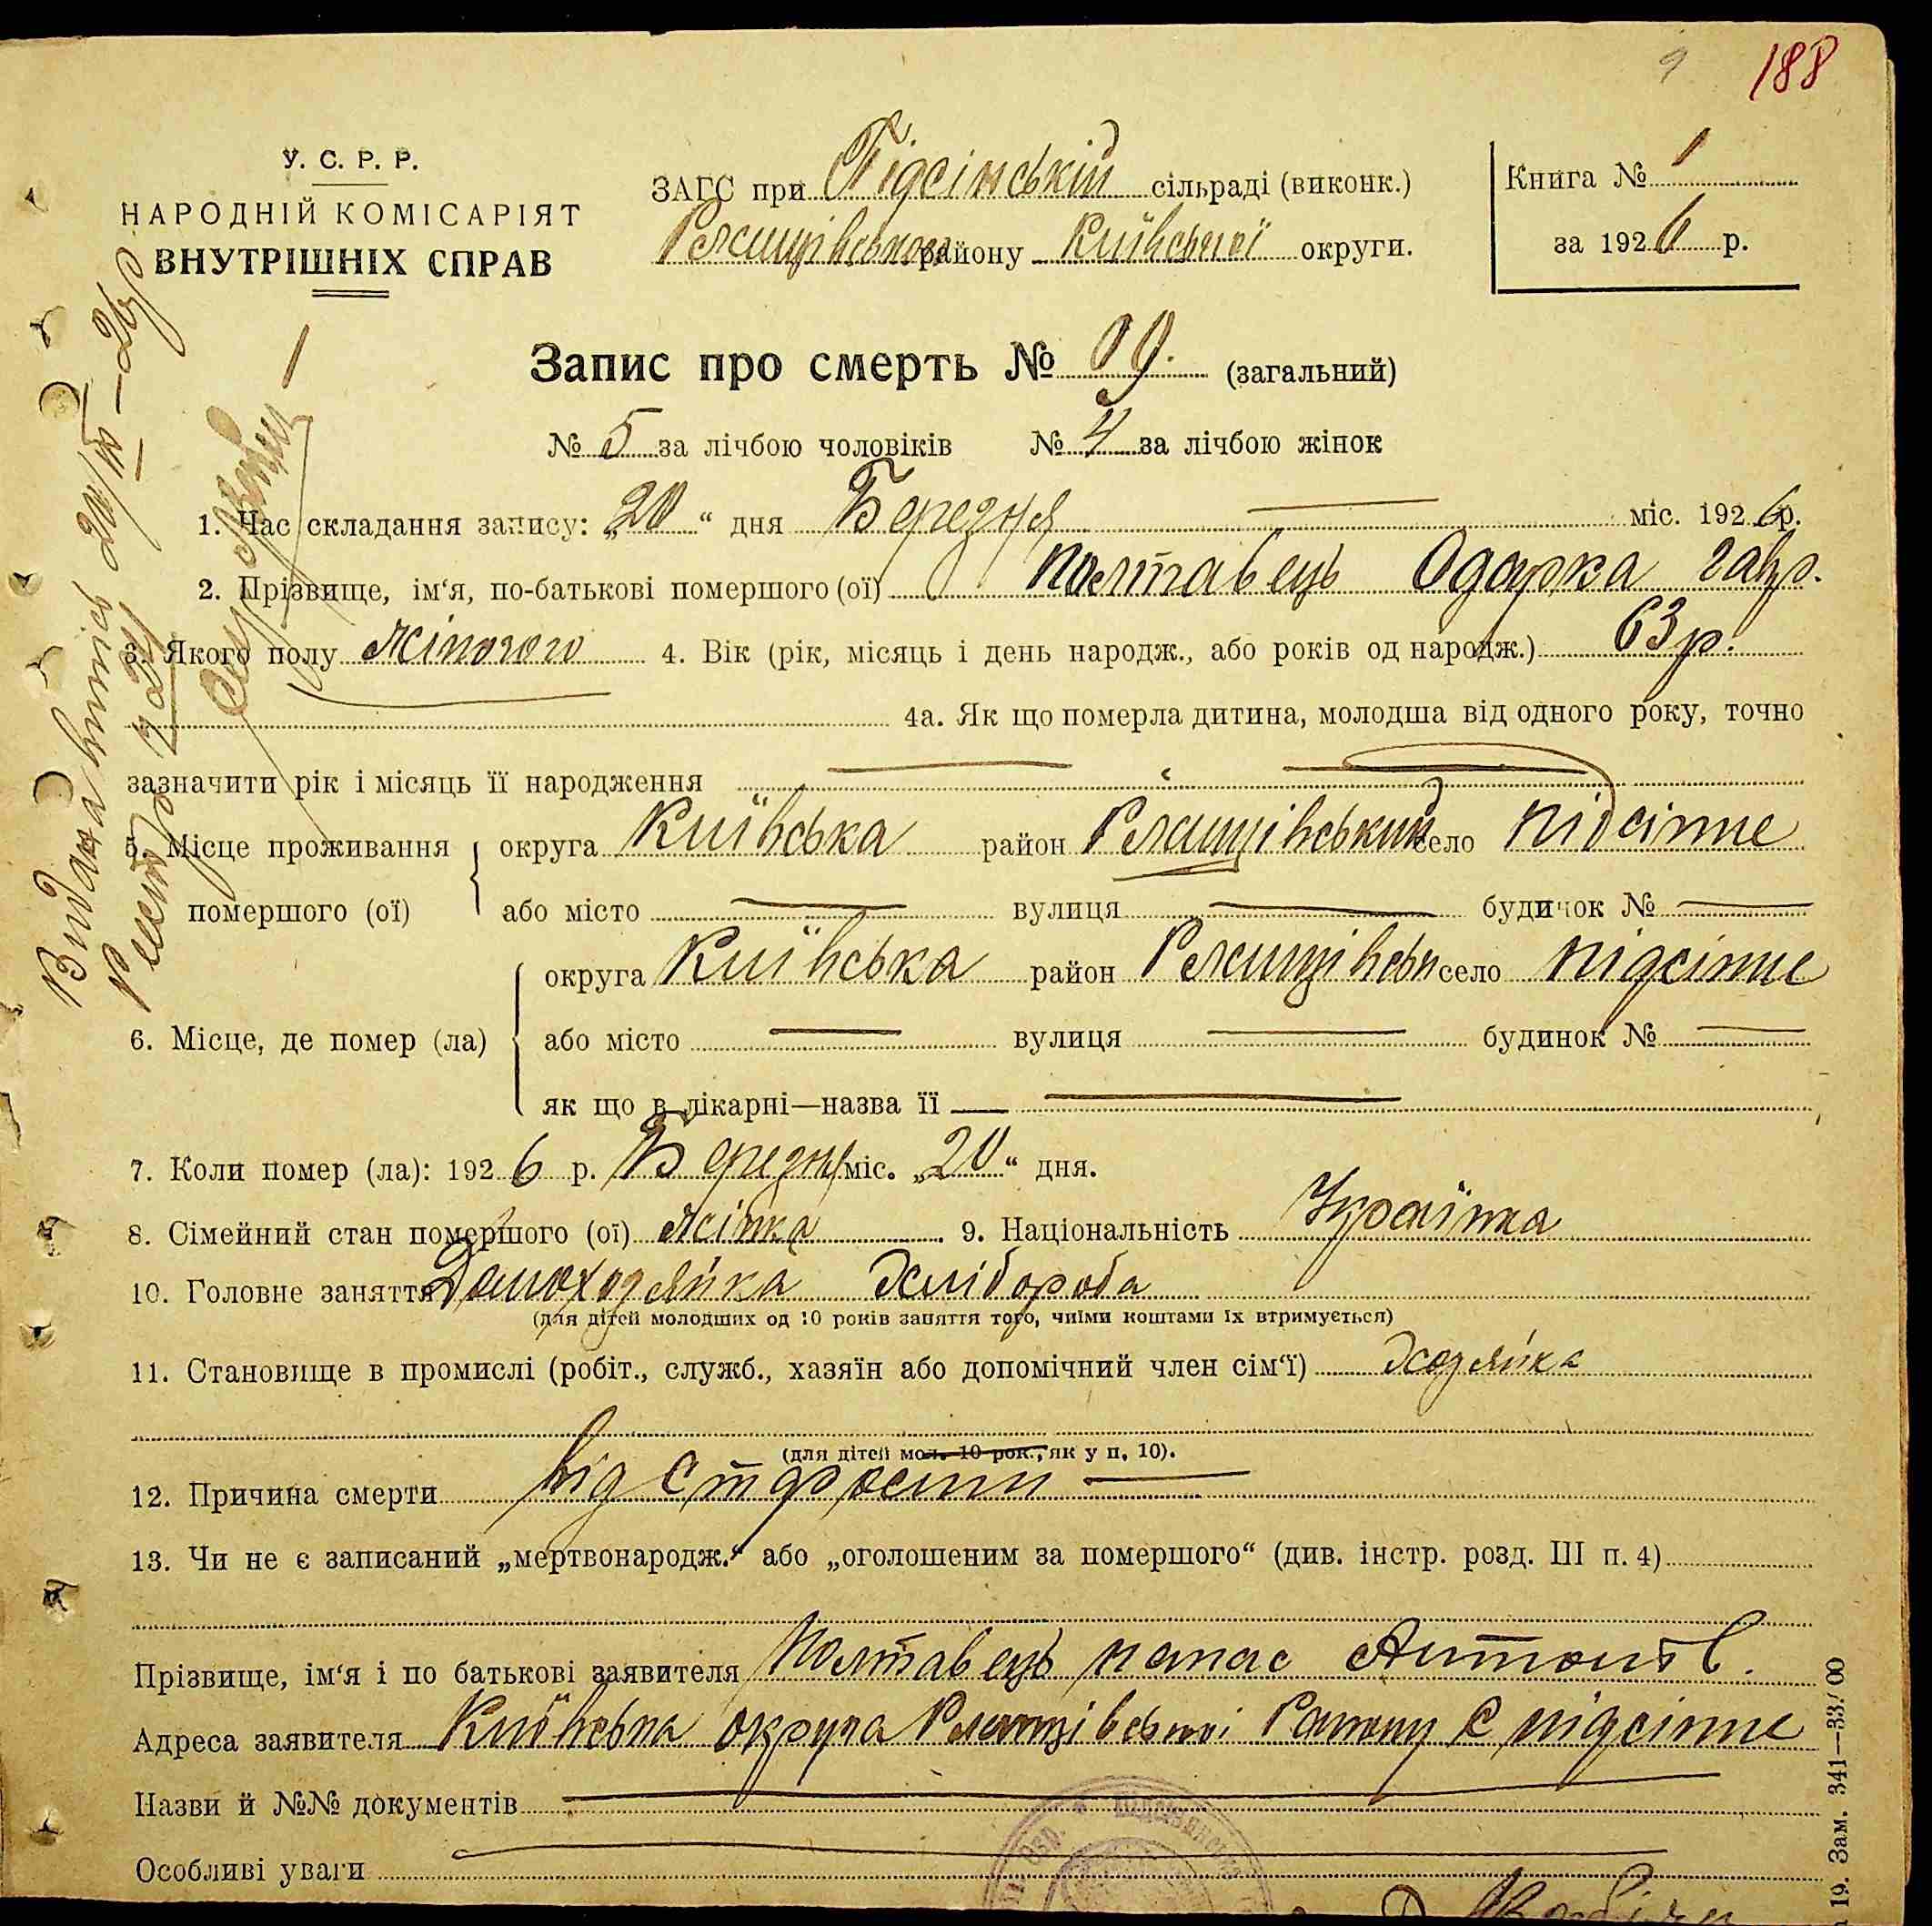 9 188
У. С. Р. Р.
НАРОДНІЙ КОМІСАРІЯТ
ВНУТРІШНІХ СПРАВ
ЗАГС при Підсінській сільраді (виконк.)
Ржищівського району Київської округи.
Книга № 1
за 1926 р.
Запис про смерть № 09. (загальний)
№ 5 за лічбою чоловіків № 4 за лічбою жінок
1. Час складання запису: „20“ дня Березня міс. 1926 р.
2. Прізвище, ім‘я, по-батькові помершого (ої) Полтавець Одарка Гавр.
3. Якого полу жіночого 4. Вік (рік, місяць і день народж., або років од народж.) 63 р.
4а. Як що померла дитина, молодша від одного року, точно
зазначити рік і місяць її народження
5. Місце проживання помершого (ої) округа Київська район Ржищівський село Підсінне
або місто вулиця будинок №
6. Місце, де помер (ла) округа Київська район Ржищівськ село Підсінне
або місто вулиця будинок №
як що в лікарні—назва її
7. Коли помер (ла): 1926 р. Березня міс. „20“ дня.
8. Сімейний стан помершого (ої) жінка 9. Національність Українка
10. Головне заняття Домохозяйка хлібороба
(для дітей молодших од 10 років заняття того, чиїми коштами їх втримується)
11. Становище в промислі (робіт., служб., хазяїн або допомічний член сім‘ї) хозяйка
(для дітей мол. 10 рок., як у п. 10).
12. Причина смерти від старости
13. Чи не є записаний „мертвонародж.“ або „оголошеним за помершого“ (див. інстр. розд. III п. 4)
Прізвище, ім‘я і по батькові заявителя Полтавець Панас Антонів.
Адреса заявителя Київська округа Ржищівської Району с Підсінне
Назви й №№ документів
Особливі уваги
19. Зам. 341—33/00
Видана